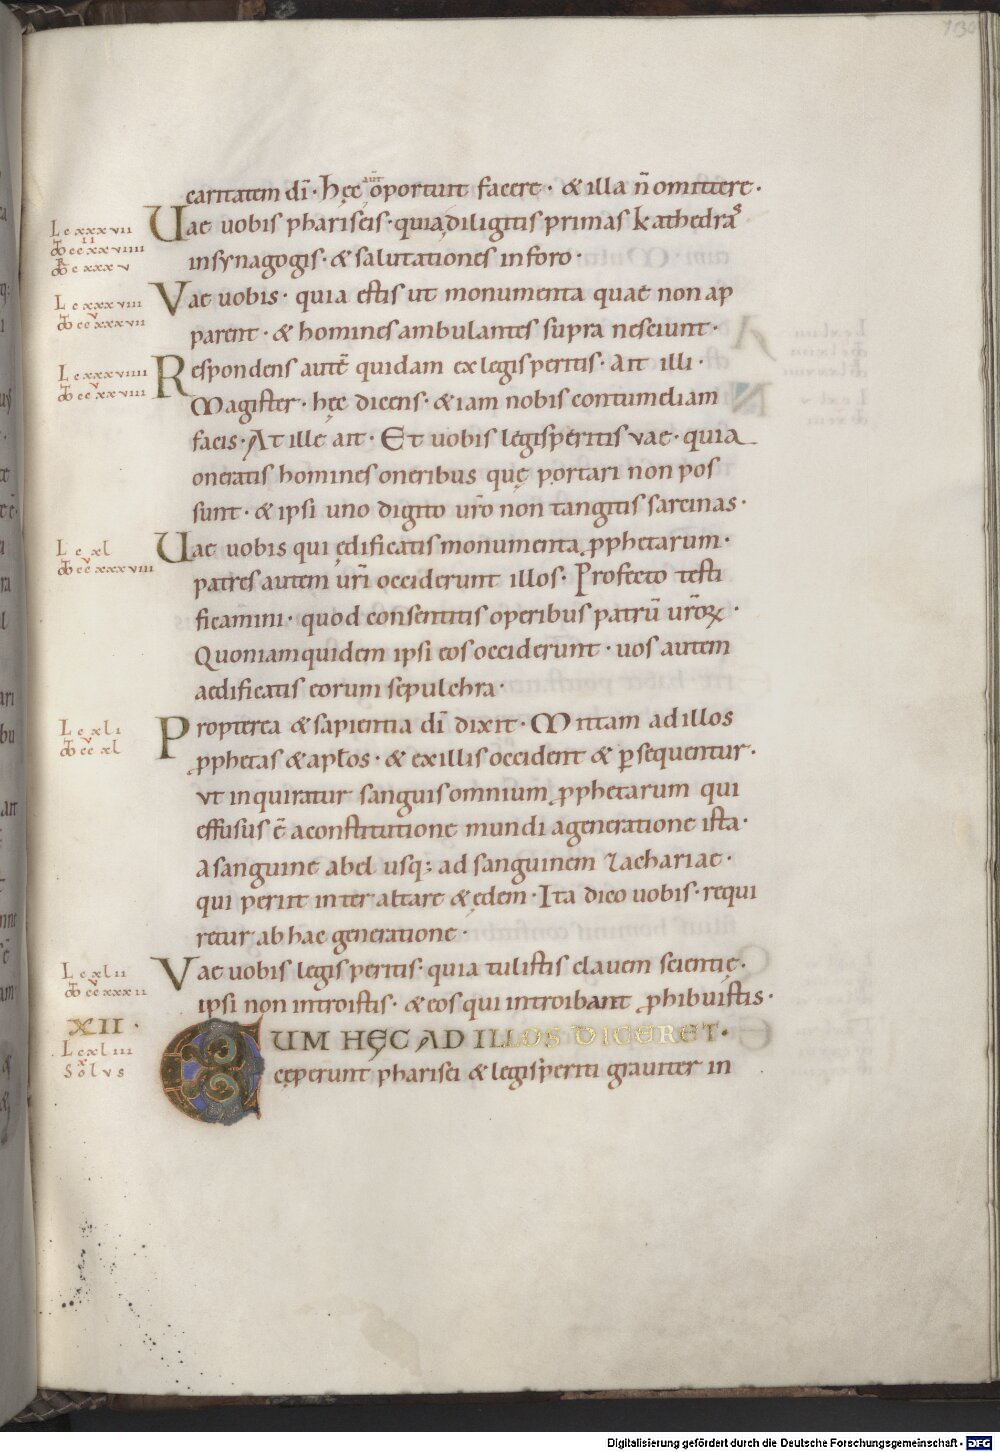 130
caritatem dī · hęc aūt oportuit facere · & illa n̄ omittere ·
L c xxxvii
Uae uobis phariseis · quia diligitis primas kathedras
M cc xxxviiii
in synagogis · & salutationes in foro ·
L c xxxviii
Vae uobis · quia estis ut monumenta quae non ap
M cc xxxvii
parent · & homines ambulantes supra nesciunt ·
L c xxxviiii
Respondens autē quidam ex legisperitis · Ait illi ·
Magister · hęc dicens · & iam nobis contumeliam
facis · At ille ait · Et uobis legisperitis vae · quia
oneratis homines oneribus quę portari non pos
sunt · & ipsi uno digito ur̄o non tangitis sarcinas ·
L c xl
Uae uobis qui ędificatis monumenta ꝓphetarum ·
M cc xxxviii
patres autem ur̄i occiderunt illos · Profecto testi
ficamini · quod consentitis operibus patrū ur̄oꝝ ·
Quoniam quidem ipsi eos occiderunt · uos autem
aedificatis eorum sepulchra ·
L c xli
Propterea & sapientia dī dixit · Mittam ad illos
M cc xl
ꝓphetas & apłos · & ex illis occident & ꝑsequentur ·
vt inquiratur sanguis omnium ꝓphetarum qui
effusus ē a constitutione mundi a generatione ista ·
A sanguine abel usq; ad sanguinem zachariae ·
qui periit inter altare & ędem · Ita dico uobis · requi
retur ab hac generatione ·
L c xlii
Vae uobis legis peritis · quia tulistis clauem scientię ·
M cc xxxii
ipsi non introistis · & eos qui introibant ꝓhibuistis ·
XII ·
CUM HĘC AD ILLOS DICERET ·
L c xliii
x
Solus
cęperunt pharisei & legisperiti grauiter in
Digitalisierung gefördert durch die Deutsche Forschungsgemeinschaft - DFG